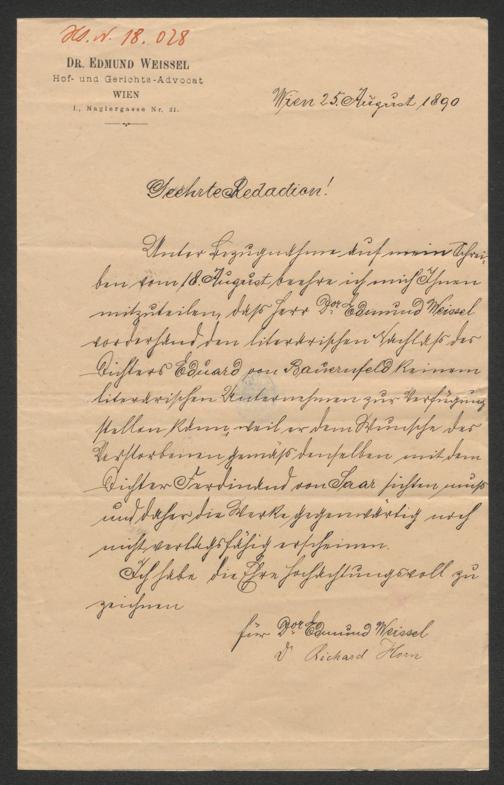 Hs. N. 18.028
DR. EDMUND WEISSEL
Hof- und Gerichts-Advocat
WIEN
I., Naglergasse Nr. 21.
Wien 25. August 1890
Geehrte Redaction!
Unter Bezugnahme auf mein Schrei-
ben vom 18. August beehre ich mich Ihnen
mitzuteilen, daß Herr Dor Edmund Weissel
vorderhand den literarischen Nachlaß des
Dichters Eduard von Bauernfeld keinem
literarischen Unternehmen zur Verfügung
stellen kann, weil er dem Wunsche des
Verstorbenen gemäß denselben mit dem
Dichter Ferdinand von Saar sichten muß
und daher die Werke gegenwärtig noch
nicht verlagsfähig erscheinen.
Ich habe die Ehre hochachtungsvoll zu
zeichnen
für Dor Edmund Weissel
Dr Richard Horn